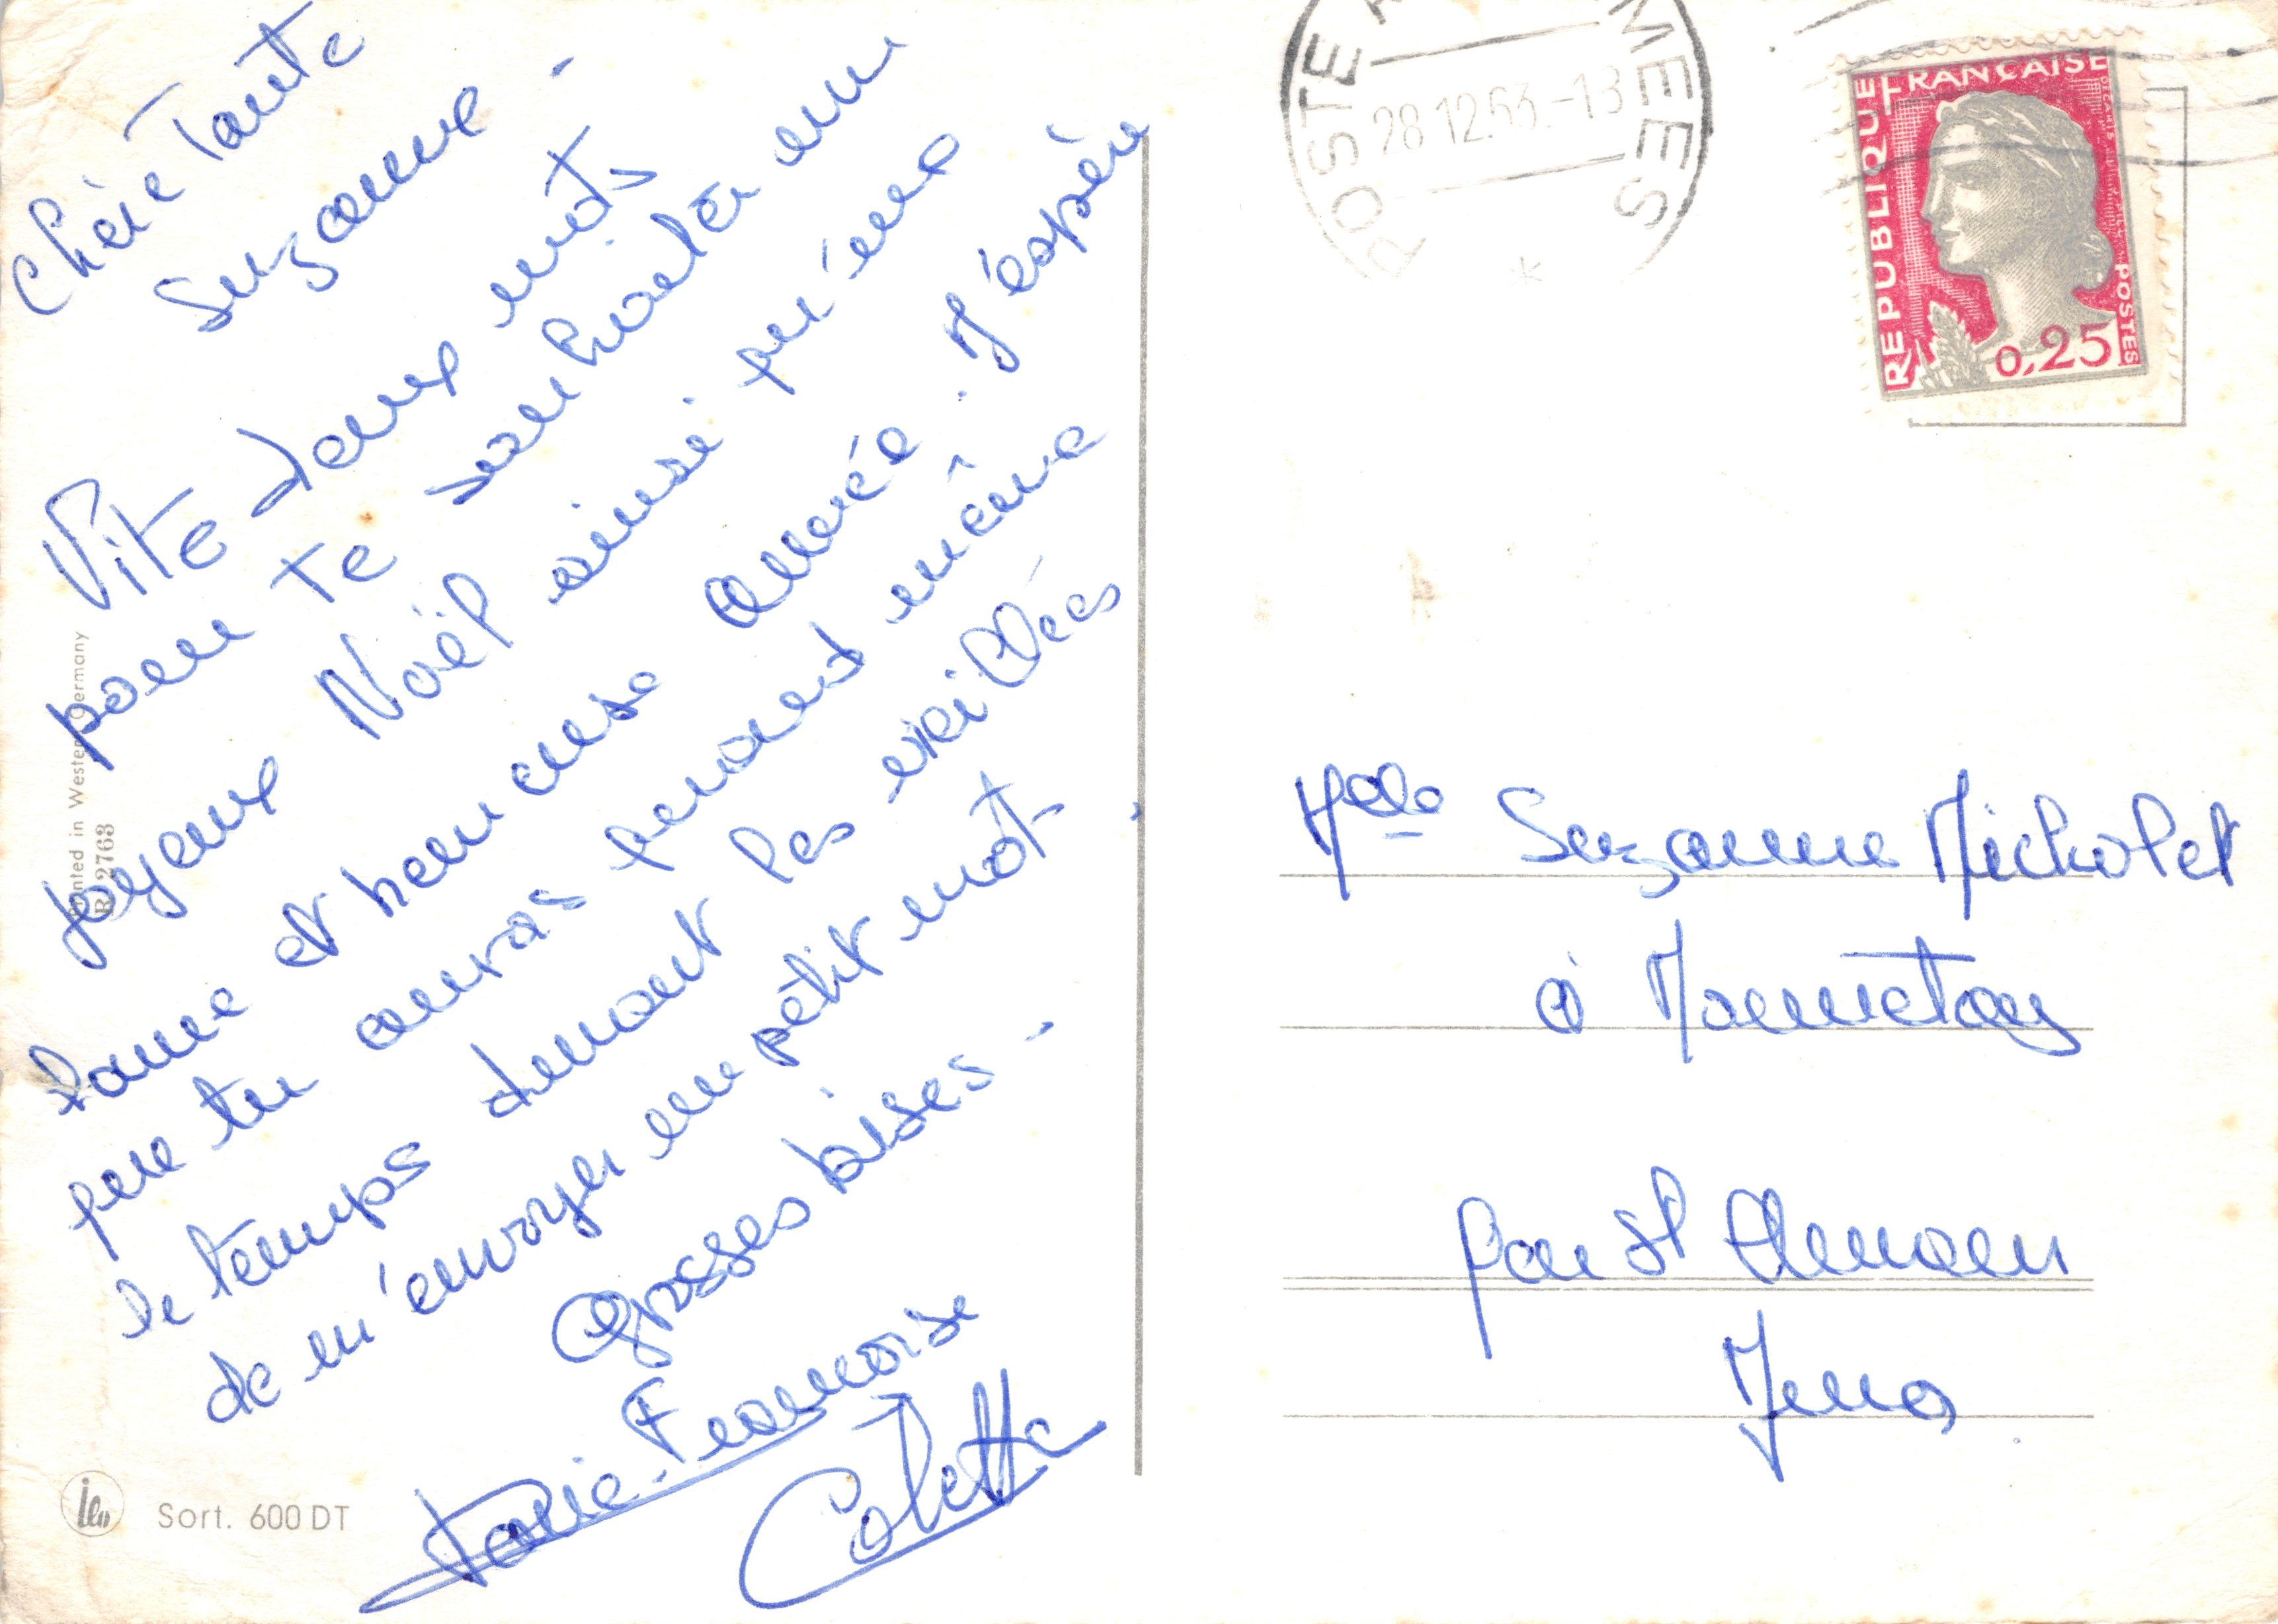 Chère Tante
Suzanne -
Vite deux mots
pour te souhaiter un
joyeux Noël ainsi qu'une
bonne et heureuse année. J'espère
que tu auras quand même
le temps durant les veillées
de m'envoyer un petit mot.
Grosses bises -
Marie-Françoise
Colette
Printed in Western Germany
R 2763
Sort. 600 DT
POSTE AUX ARMEES
28.12.63.-18
REPUBLIQUE FRANÇAISE
POSTES
0,25
Melle Suzanne Micholet
à
par St Amour
Jura